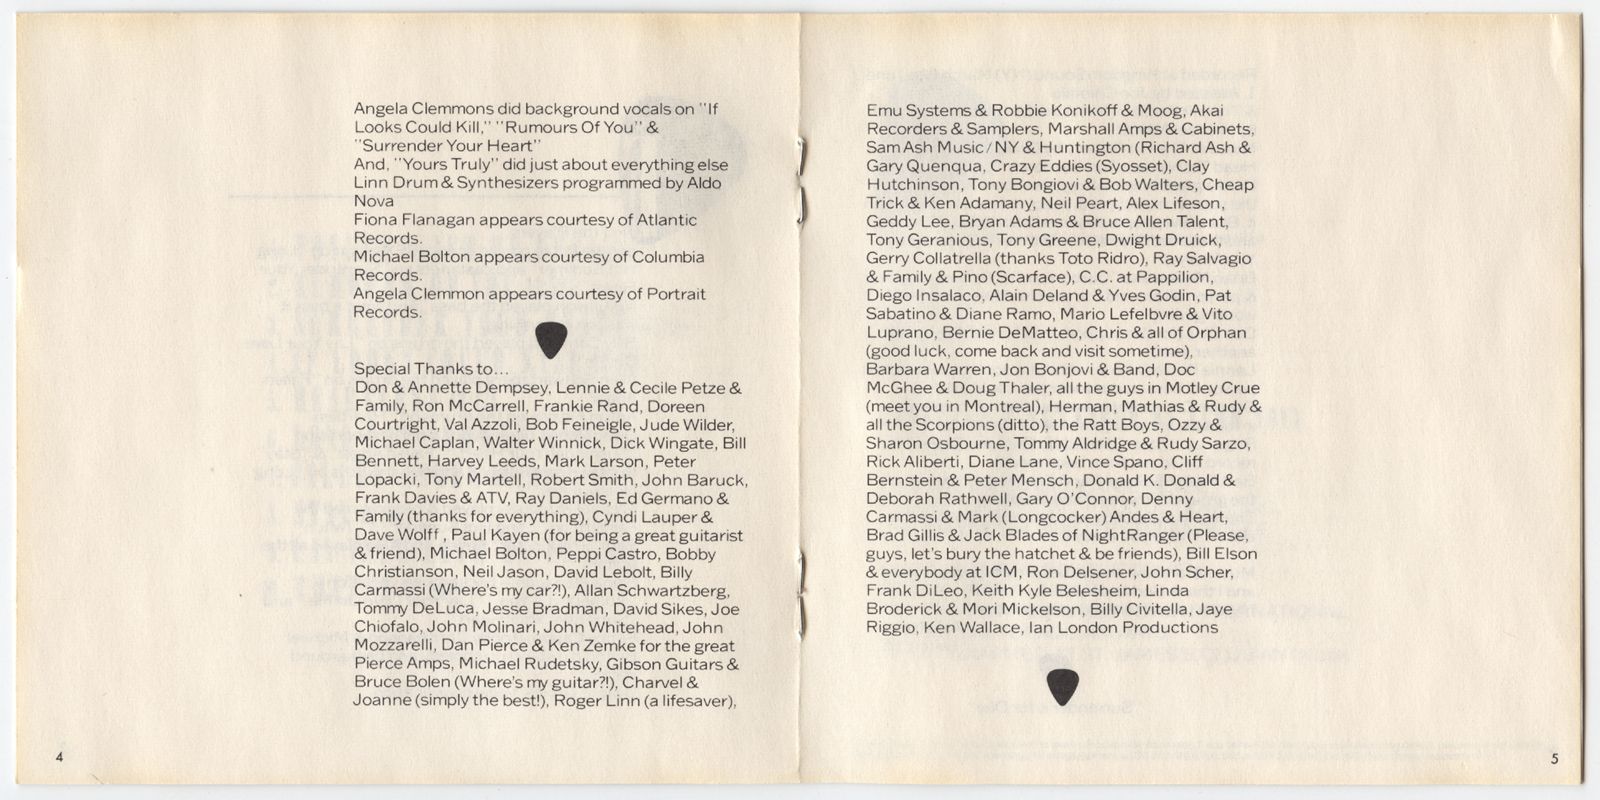 Angela Clemmons did background vocals on "If
Looks Could Kill," "Rumours Of You" &
"Surrender Your Heart"
And, "Yours Truly" did just about everything else
Linn Drum & Synthesizers programmed by Aldo
Nova
Fiona Flanagan appears courtesy of Atlantic
Records.
Michael Bolton appears courtesy of Columbia
Records.
Angela Clemmon appears courtesy of Portrait
Records.
Special Thanks to...
Don & Annette Dempsey, Lennie & Cecile Petze &
Family, Ron McCarrell, Frankie Rand, Doreen
Courtright, Val Azzoli, Bob Feineigle, Jude Wilder,
Michael Caplan, Walter Winnick, Dick Wingate, Bill
Bennett, Harvey Leeds, Mark Larson, Peter
Lopacki, Tony Martell, Robert Smith, John Baruck,
Frank Davies & ATV, Ray Daniels, Ed Germano &
Family (thanks for everything), Cyndi Lauper &
Dave Wolff , Paul Kayen (for being a great guitarist
& friend), Michael Bolton, Peppi Castro, Bobby
Christianson, Neil Jason, David Lebolt, Billy
Carmassi (Where's my car?!), Allan Schwartzberg,
Tommy DeLuca, Jesse Bradman, David Sikes, Joe
Chiofalo, John Molinari, John Whitehead, John
Mozzarelli, Dan Pierce & Ken Zemke for the great
Pierce Amps, Michael Rudetsky, Gibson Guitars &
Bruce Bolen (Where's my guitar?!), Charvel &
Joanne (simply the best!), Roger Linn (a lifesaver),
4
Emu Systems & Robbie Konikoff & Moog, Akai
Recorders & Samplers, Marshall Amps & Cabinets,
Sam Ash Music/NY & Huntington (Richard Ash &
Gary Quenqua, Crazy Eddies (Syosset), Clay
Hutchinson, Tony Bongiovi & Bob Walters, Cheap
Trick & Ken Adamany, Neil Peart, Alex Lifeson,
Geddy Lee, Bryan Adams & Bruce Allen Talent,
Tony Geranious, Tony Greene, Dwight Druick,
Gerry Collatrella (thanks Toto Ridro), Ray Salvagio
& Family & Pino (Scarface), C.C. at Pappilion,
Diego Insalaco, Alain Deland & Yves Godin, Pat
Sabatino & Diane Ramo, Mario Lefelbvre & Vito
Luprano, Bernie DeMatteo, Chris & all of Orphan
(good luck, come back and visit sometime),
Barbara Warren, Jon Bonjovi & Band, Doc
McGhee & Doug Thaler, all the guys in Motley Crue
(meet you in Montreal), Herman, Mathias & Rudy &
all the Scorpions (ditto), the Ratt Boys, Ozzy &
Sharon Osbourne, Tommy Aldridge & Rudy Sarzo,
Rick Aliberti, Diane Lane, Vince Spano, Cliff
Bernstein & Peter Mensch, Donald K. Donald &
Deborah Rathwell, Gary O'Connor, Denny
Carmassi & Mark (Longcocker) Andes & Heart,
Brad Gillis & Jack Blades of NightRanger (Please,
guys, let's bury the hatchet & be friends), Bill Elson
& everybody at ICM, Ron Delsener, John Scher,
Frank DiLeo, Keith Kyle Belesheim, Linda
Broderick & Mori Mickelson, Billy Civitella, Jaye
Riggio, Ken Wallace, Ian London Productions
5